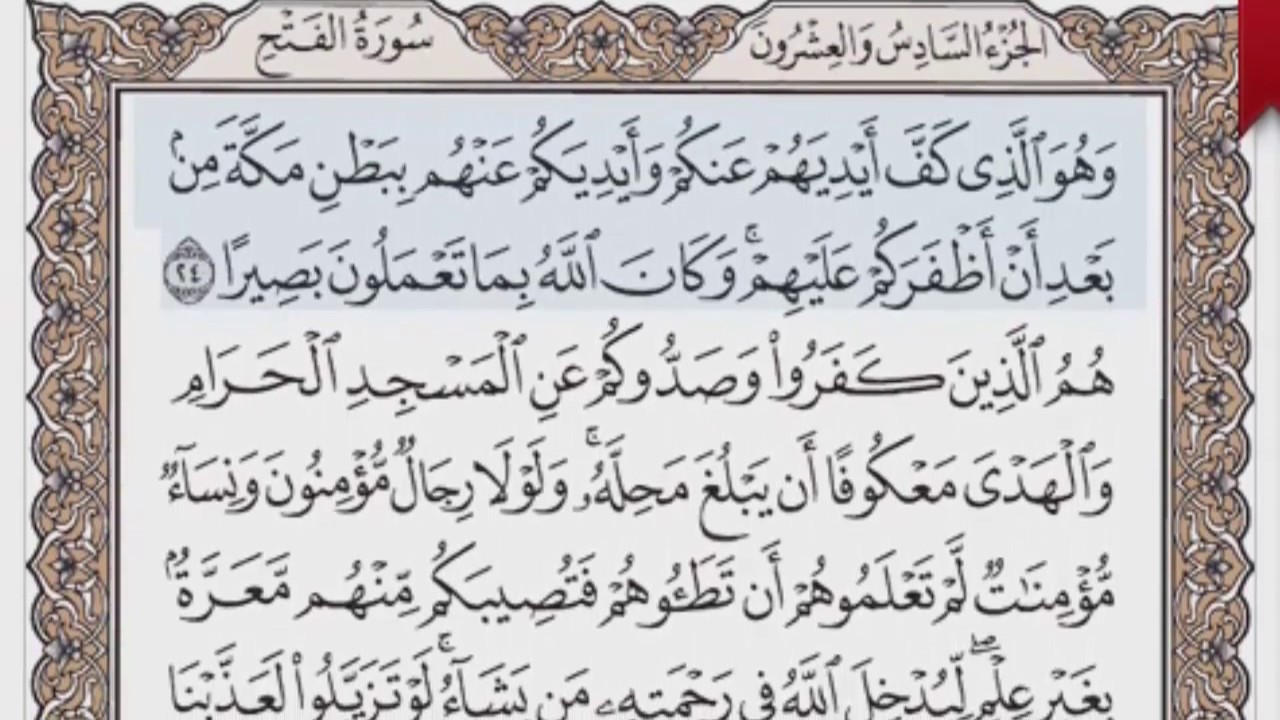 الجُزْءُ السَّادِسُ وَالعِشْرُونَ
سُورَةُ الفَتْحِ
وَهُوَ ٱلَّذِى كَفَّ أَيْدِيَهُمْ عَنكُمْ وَأَيْدِيَكُمْ عَنْهُم بِبَطْنِ مَكَّةَ مِنۢ
بَعْدِ أَنْ أَظْفَرَكُمْ عَلَيْهِمْ ۚ وَكَانَ ٱللَّهُ بِمَا تَعْمَلُونَ بَصِيرًا ٢٤
هُمُ ٱلَّذِينَ كَفَرُوا۟ وَصَدُّوكُمْ عَنِ ٱلْمَسْجِدِ ٱلْحَرَامِ
وَٱلْهَدْىَ مَعْكُوفًا أَن يَبْلُغَ مَحِلَّهُۥ ۚ وَلَوْلَا رِجَالٌ مُّؤْمِنُونَ وَنِسَآءٌ
مُّؤْمِنَـٰتٌ لَّمْ تَعْلَمُوهُمْ أَن تَطَـُٔوهُمْ فَتُصِيبَكُم مِّنْهُم مَّعَرَّةٌۢ
بِغَيْرِ عِلْمٍ ۖ لِّيُدْخِلَ ٱللَّهُ فِى رَحْمَتِهِۦ مَن يَشَآءُ ۚ لَوْ تَزَيَّلُوا۟ لَعَذَّبْنَا